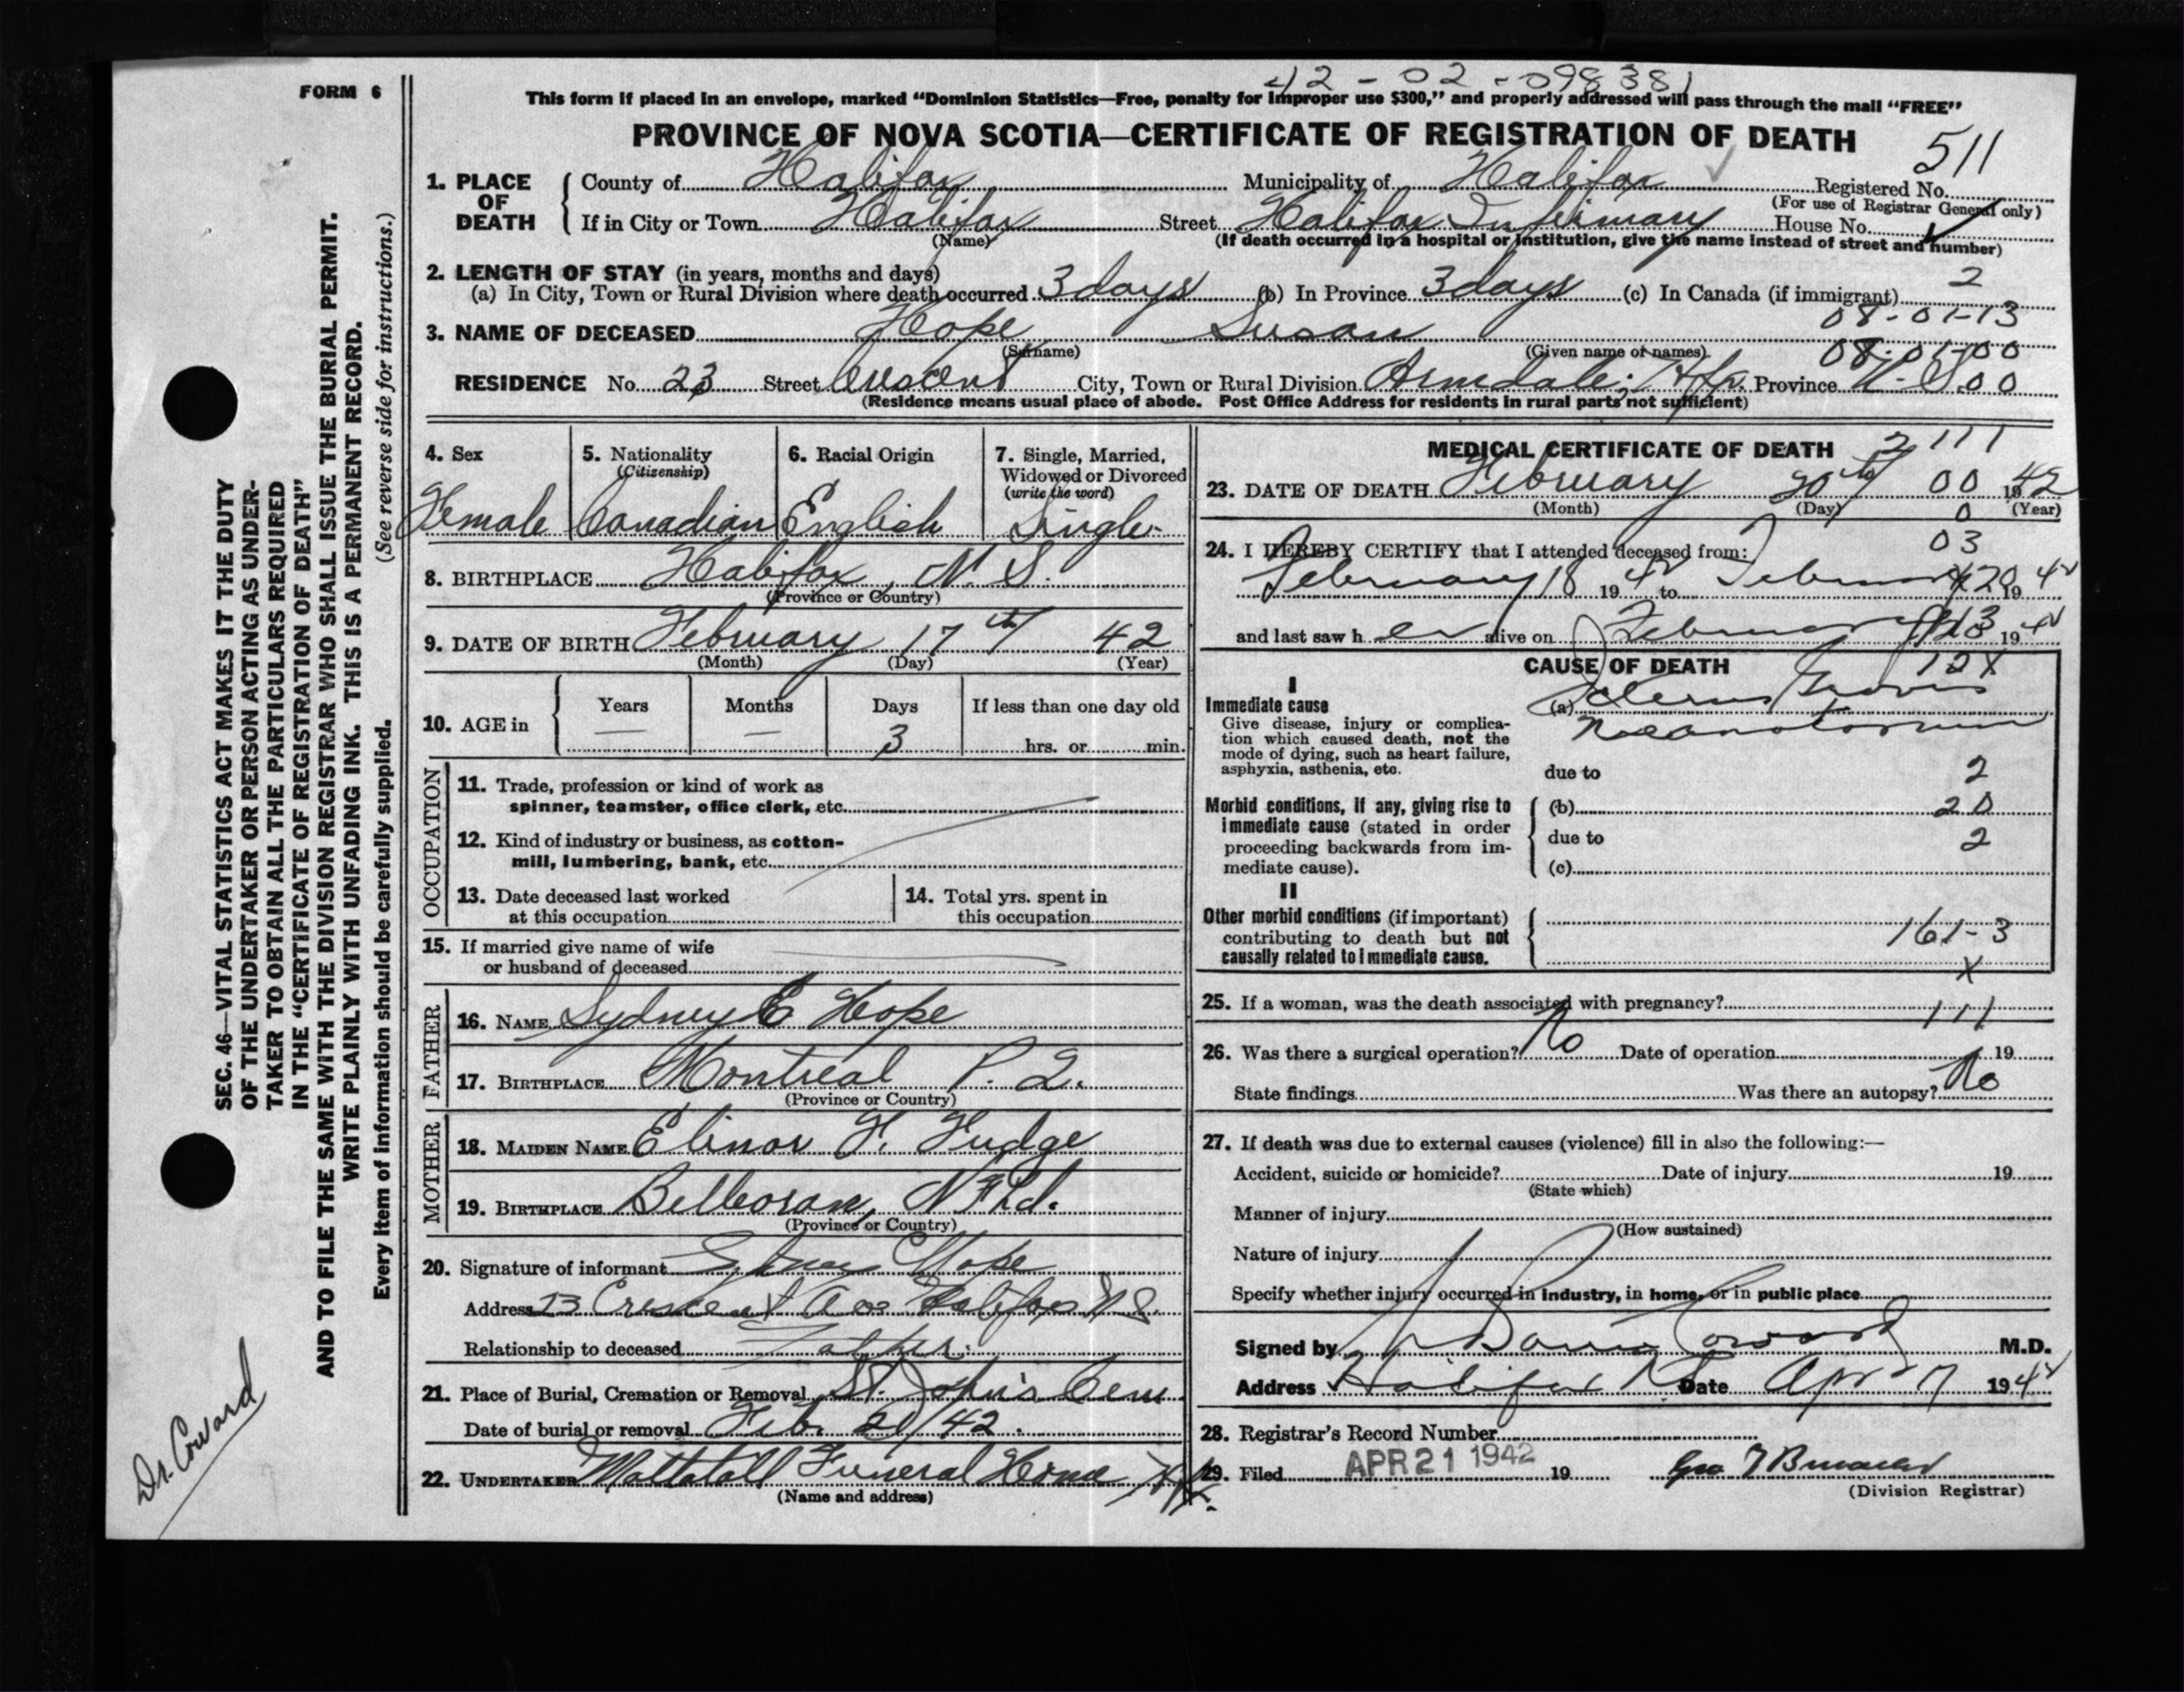 FORM 6
42 - 02 - 098381
This form if placed in an envelope, marked "Dominion Statistics—Free, penalty for improper use $300," and properly addressed will pass through the mail "FREE"
PROVINCE OF NOVA SCOTIA—CERTIFICATE OF REGISTRATION OF DEATH
511
1. PLACE OF DEATH
County of Halifax Municipality of Halifax Registered No.
(For use of Registrar General only)
If in City or Town Halifax Street Halifax Infirmary House No.
(Name) (If death occurred in a hospital or institution, give the name instead of street and number)
2. LENGTH OF STAY (in years, months and days)
2
(a) In City, Town or Rural Division where death occurred 3 days (b) In Province 3 days (c) In Canada (if immigrant)
08-01-13
3. NAME OF DECEASED Hope Susan
(Surname) (Given name or names) 08-01-00
RESIDENCE No. 23 Street Crescent City, Town or Rural Division Armdale, Hfx. Province N. S. 00
(Residence means usual place of abode. Post Office Address for residents in rural parts not sufficient)
4. Sex
Female
5. Nationality
(Citizenship)
Canadian
6. Racial Origin
English
7. Single, Married,
Widowed or Divorced
(write the word)
Single
8. BIRTHPLACE Halifax, N. S.
(Province or Country)
9. DATE OF BIRTH February 17th 42
(Month) (Day) (Year)
10. AGE in
Years Months Days If less than one day old
— — 3 hrs. or min.
OCCUPATION
11. Trade, profession or kind of work as
spinner, teamster, office clerk, etc.
12. Kind of industry or business, as cotton-
mill, lumbering, bank, etc.
13. Date deceased last worked
at this occupation
14. Total yrs. spent in
this occupation
15. If married give name of wife
or husband of deceased
FATHER
16. NAME Sydney E Hope
17. BIRTHPLACE Montreal P. Q.
(Province or Country)
MOTHER
18. MAIDEN NAME Elinor F. Fudge
19. BIRTHPLACE Belleoran, Nfld.
(Province or Country)
20. Signature of informant Sydney E Hope
Address 23 Crescent Ave Halifax N S
Relationship to deceased Father
21. Place of Burial, Cremation or Removal St. John's Cem
Date of burial or removal Feb. 21/42.
22. UNDERTAKER Mattatall Funeral Home Hfx.
(Name and address)
MEDICAL CERTIFICATE OF DEATH
2 111
23. DATE OF DEATH February 20th 00 1942
(Month) (Day) (Year)
0
03
24. I HEREBY CERTIFY that I attended deceased from:
February 18 1942 to February 20 1942
and last saw her alive on February 1942
CAUSE OF DEATH
12X
I
Immediate cause
Give disease, injury or complica-
tion which caused death, not the
mode of dying, such as heart failure,
asphyxia, asthenia, etc.
(a) Icterus Gravis
Neonatorum
due to 2
Morbid conditions, if any, giving rise to
immediate cause (stated in order
proceeding backwards from im-
mediate cause).
(b) 20
due to 2
(c)
II
Other morbid conditions (if important)
contributing to death but not
causally related to immediate cause.
161-3
X
25. If a woman, was the death associated with pregnancy?
111
26. Was there a surgical operation? No Date of operation 19
State findings Was there an autopsy? No
27. If death was due to external causes (violence) fill in also the following:—
Accident, suicide or homicide? Date of injury 19
(State which)
Manner of injury
(How sustained)
Nature of injury
Specify whether injury occurred in industry, in home, or in public place
Signed by Coward M.D.
Address Halifax NS Date Apr 7 1942
28. Registrar's Record Number
29. Filed APR 21 1942 19
(Division Registrar)
SEC. 46—VITAL STATISTICS ACT MAKES IT THE DUTY
OF THE UNDERTAKER OR PERSON ACTING AS UNDER-
TAKER TO OBTAIN ALL THE PARTICULARS REQUIRED
IN THE "CERTIFICATE OF REGISTRATION OF DEATH"
AND TO FILE THE SAME WITH THE DIVISION REGISTRAR WHO SHALL ISSUE THE BURIAL PERMIT.
WRITE PLAINLY WITH UNFADING INK. THIS IS A PERMANENT RECORD.
Every item of information should be carefully supplied. (See reverse side for instructions.)
Dr. Coward